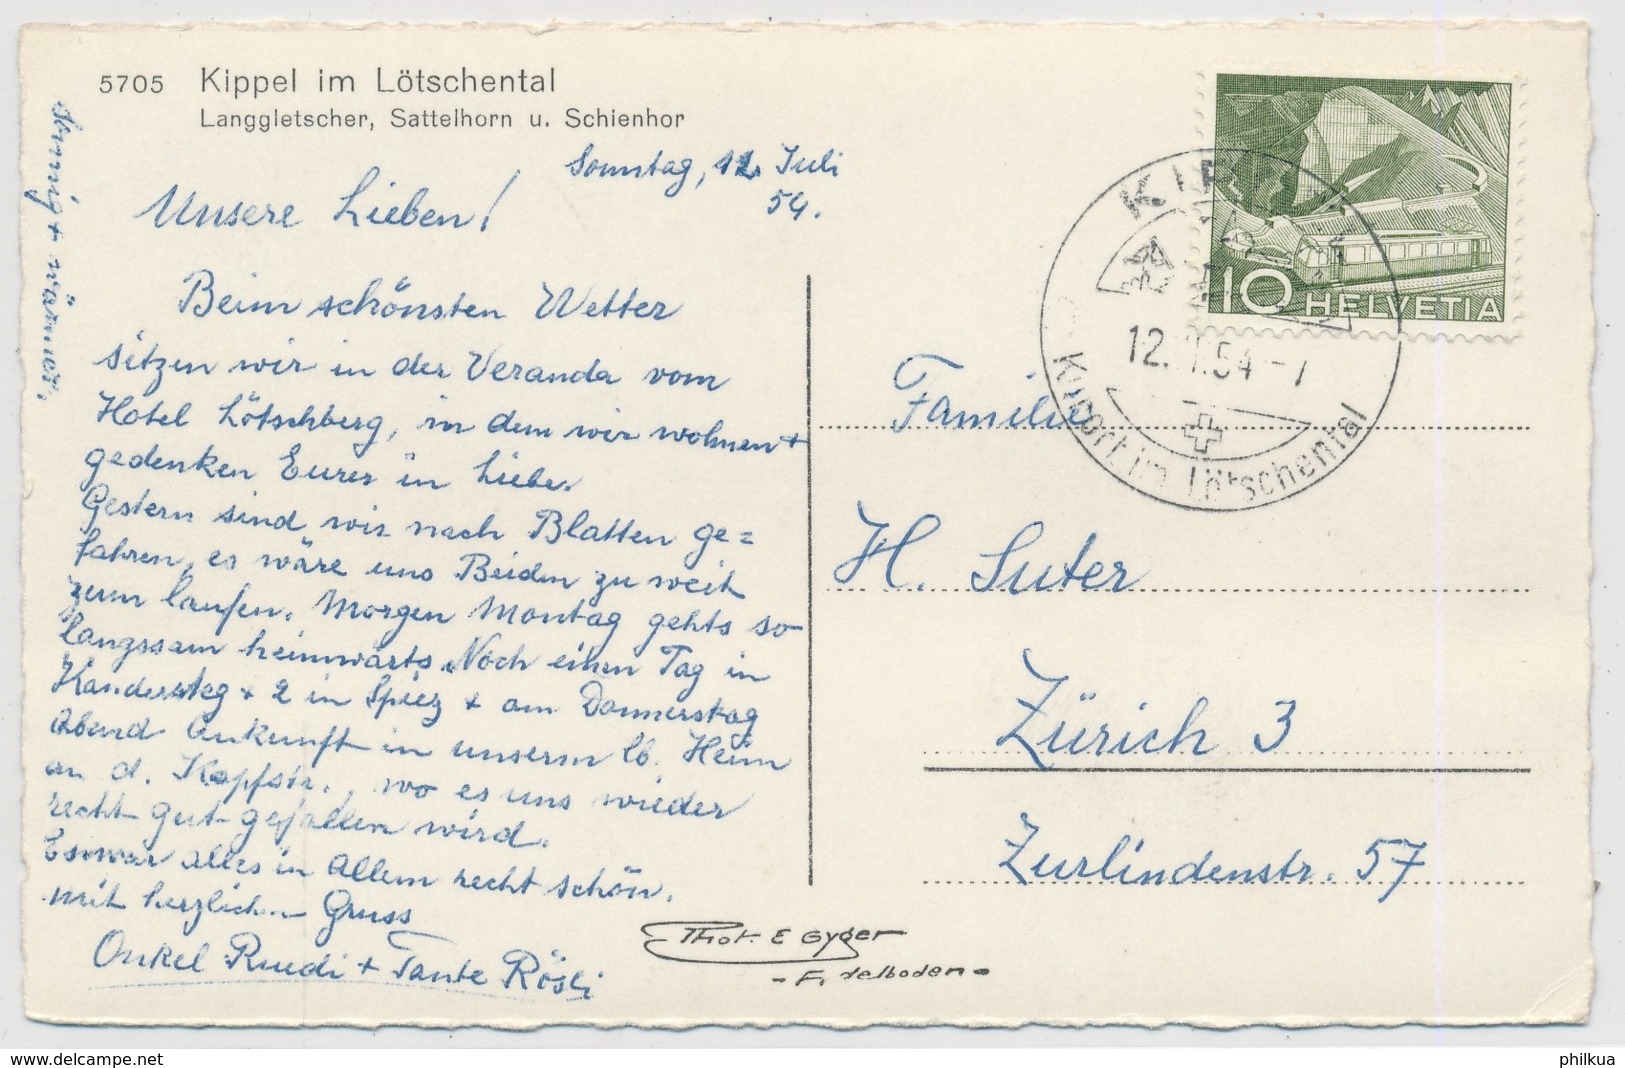 5705 Kippel im Lötschental
Langgletscher, Sattelhorn u. Schienhor
Sonntag, 12. Juli
54.
Unsere Lieben!
Beim schönsten Wetter
sitzen wir in der Veranda vom
Hotel Lötschberg, in dem wir wohnen +
gedenken Eurer in Liebe.
Gestern sind wir nach Blatten ge=
fahren, es wäre uns Beiden zu weit
zum laufen. Morgen Montag gehts so
langssam heimwärts. Noch einen Tag in
Kandersteg + 2 in Spiez + am Donnerstag
Abend Ankunft in unserm lb. Heim
an d. Kapfstr., wo es uns wieder
recht gut gefallen wird.
Es war alles in Allem recht schön.
mit herzlichen Gruss
Onkel Ruedi + Tante Rösli
Sonnig + wärmer.
Phot. E Gyger
- Adelboden -
HELVETIA
10
KIPPEL
12. VII. 54 - 7
Kurort im Lötschental
Familie
H. Suter
Zürich 3
Zurlindenstr. 57
delcampe.net
philkua